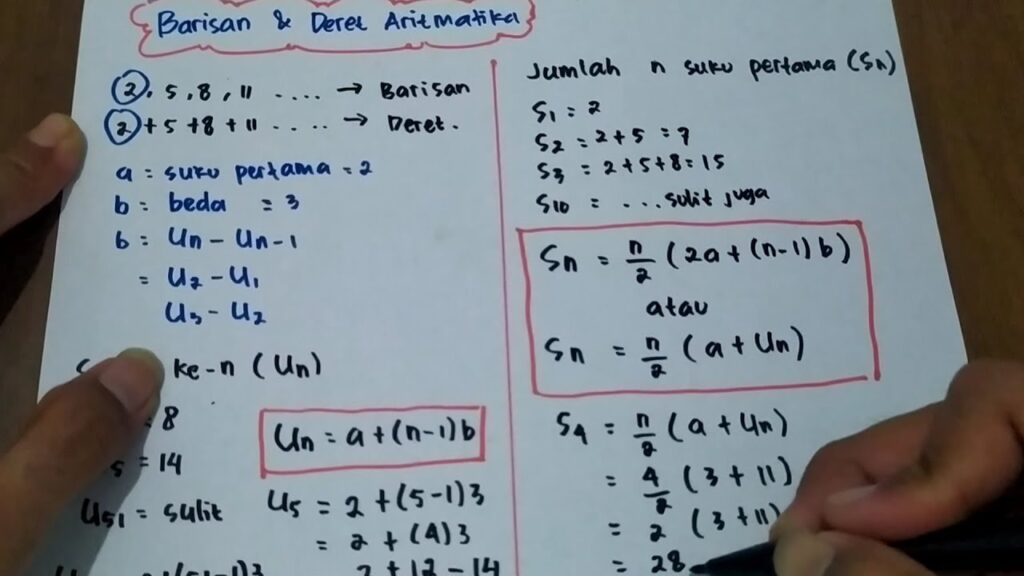 Barisan & Deret Aritmatika
2, 5, 8, 11 .... → Barisan
2 + 5 + 8 + 11 ..... → Deret.
a = suku pertama = 2
b = beda = 3
b = Un - Un-1
= U2 - U1
U3 - U2
ke-n (Un)
= 8
= 14
U51 = sulit
Un = a + (n-1) b
U5 = 2 + (5-1) 3
= 2 + (4) 3
2 + 12 - 14
Jumlah n suku pertama (Sn)
S1 = 2
S2 = 2 + 5 = 7
S3 = 2 + 5 + 8 = 15
S10 = ... sulit juga
Sn = n/2 (2a + (n-1) b)
atau
Sn = n/2 (a + Un)
S4 = n/2 (a + Un)
= 4/2 (3 + 11)
= 2 (3 + 11)
= 28